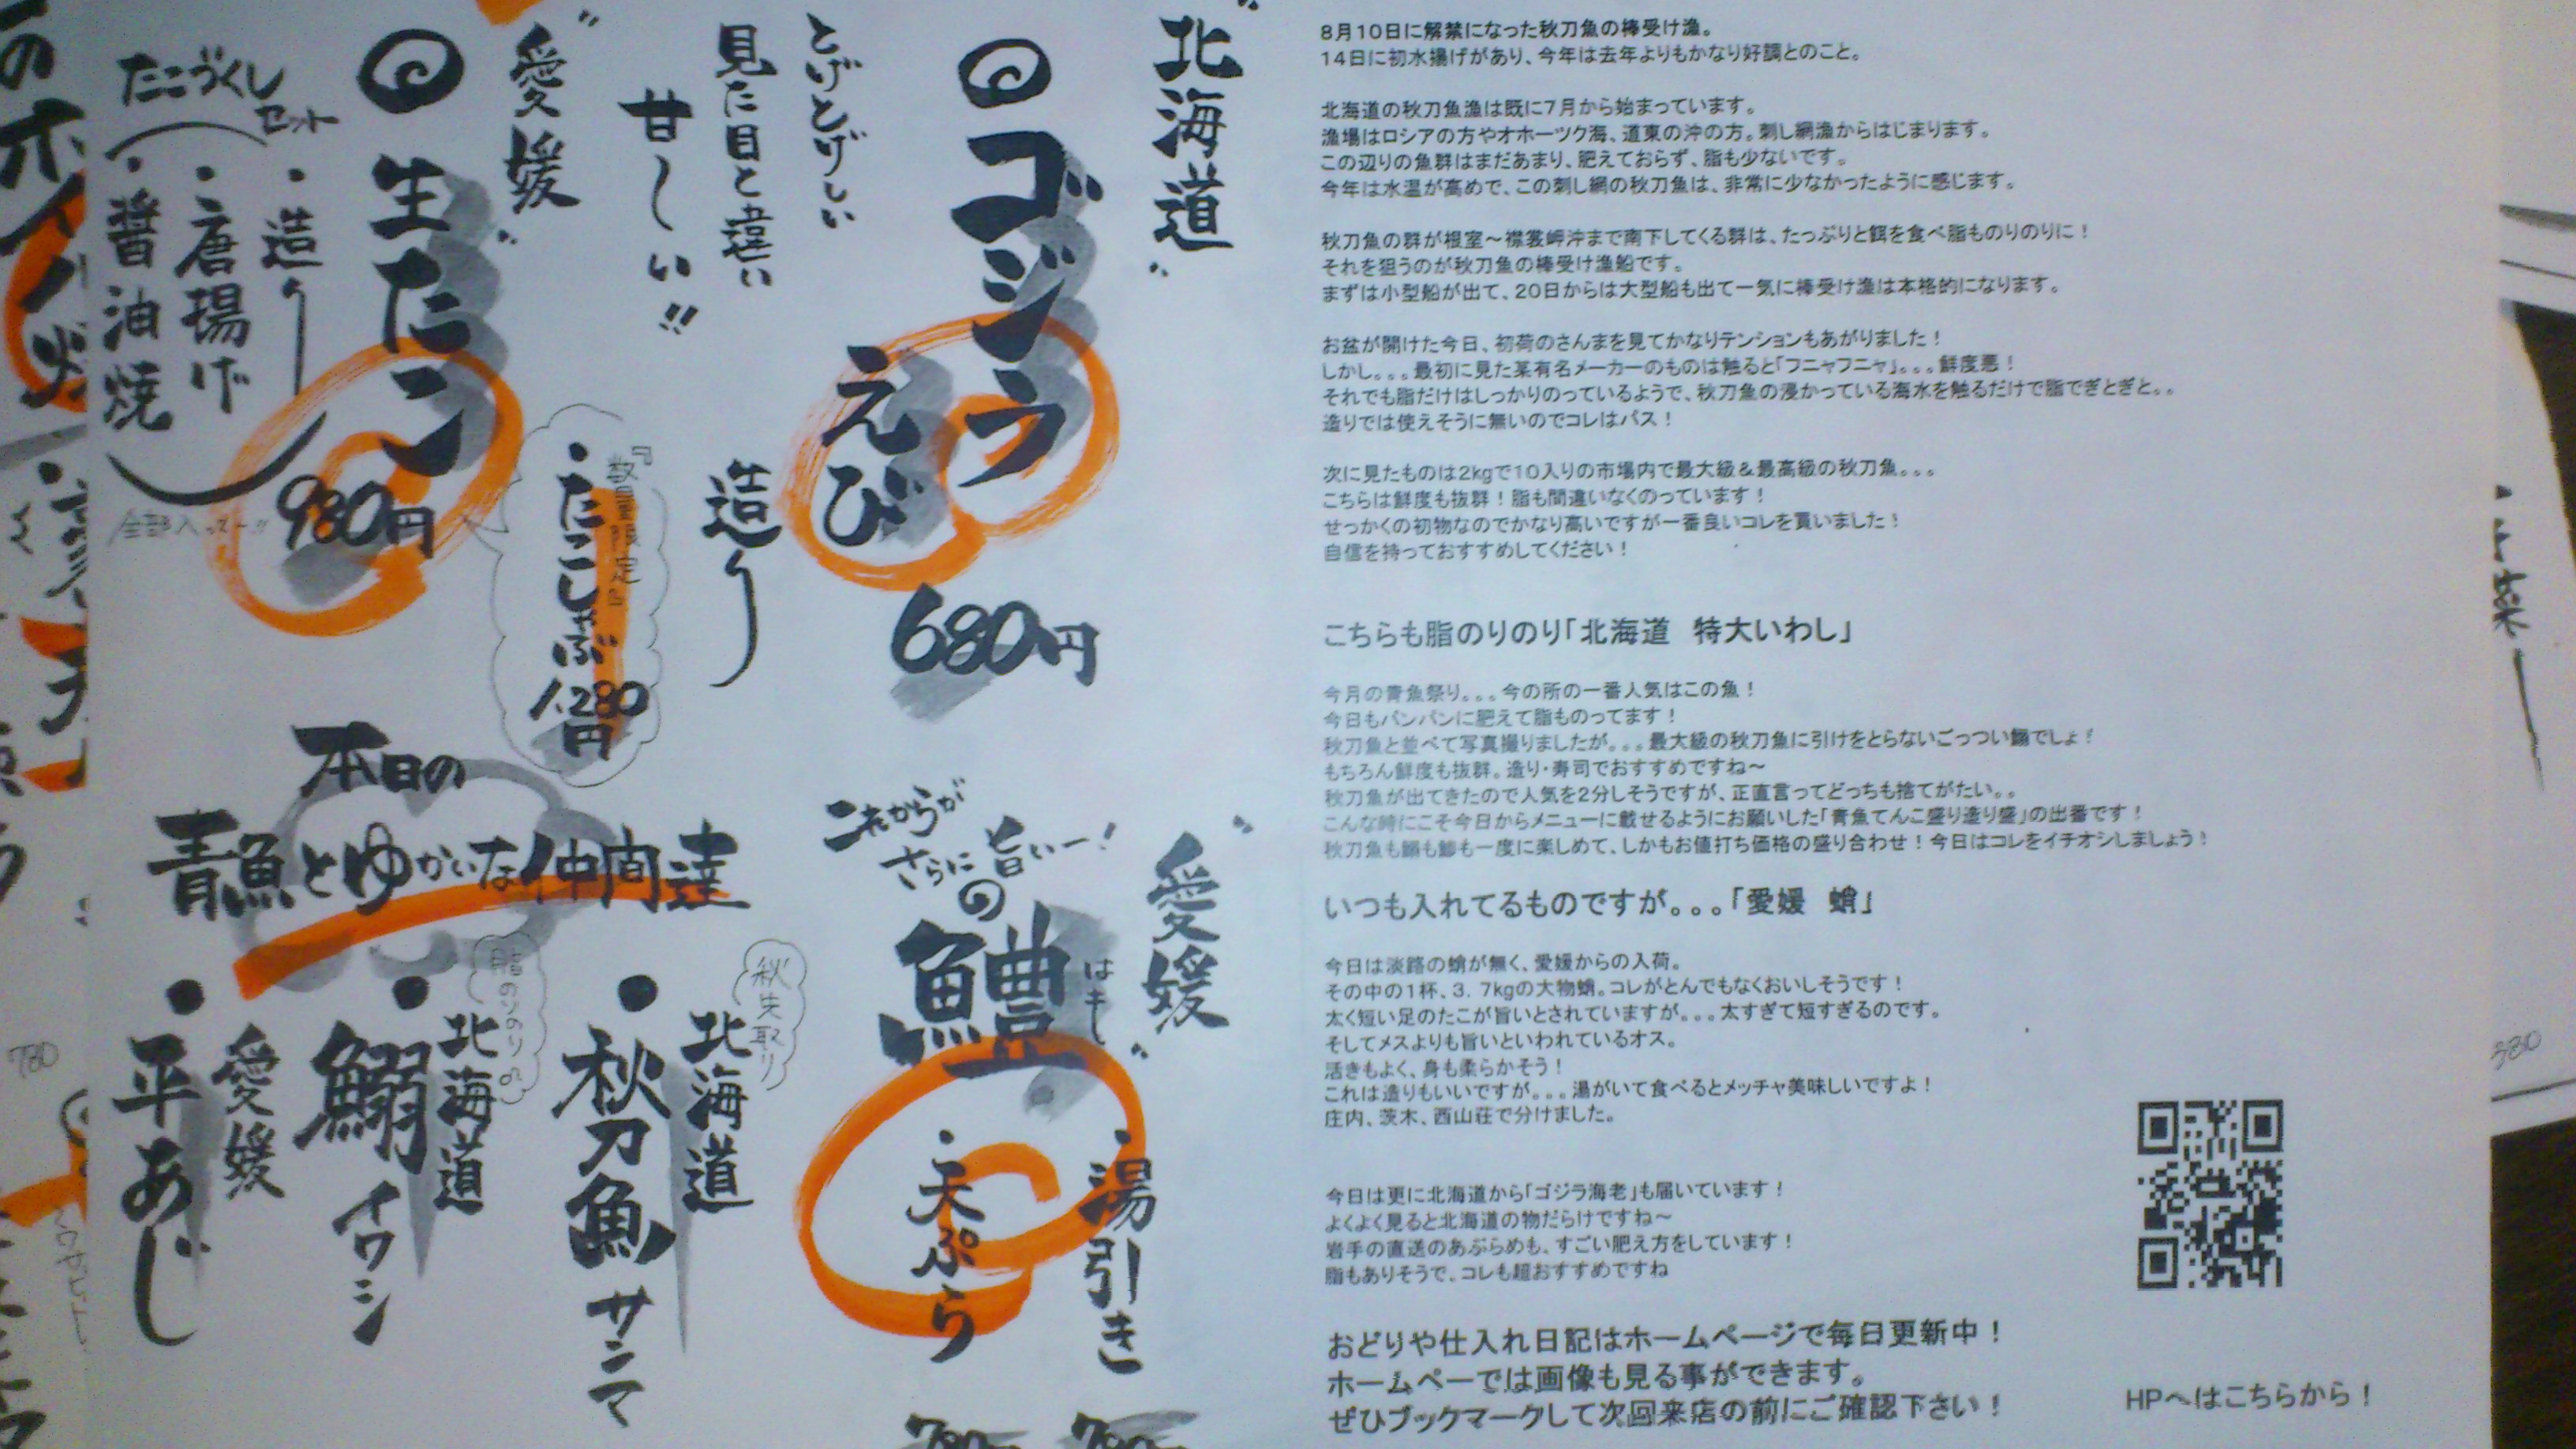 北海道
ゴジラ
えび
680円
とげとげしい
見た目と違い
甘〜い!!
造り
愛媛
生たこ
980円
たこづくし
セット
・造り
・唐揚げ
・醤油焼
全部入って〜!!
『数量限定』
・たこしゃぶ
1,280
円
これからが
さらに旨いー!
愛媛
鱧
はも
・湯引き
・天ぷら
780
780
本日の
青魚とゆかいな仲間達
秋先取り
北海道
・秋刀魚 サンマ
脂のりのり♪
北海道
・鰯 イワシ
愛媛
・平あじ
780
8月10日に解禁になった秋刀魚の棒受け漁。
14日に初水揚げがあり、今年は去年よりもかなり好調とのこと。
北海道の秋刀魚漁は既に7月から始まっています。
漁場はロシアの方やオホーツク海、道東の沖の方。刺し網漁からはじまります。
この辺りの魚群はまだあまり、肥えておらず、脂も少ないです。
今年は水温が高めで、この刺し網の秋刀魚は、非常に少なかったように感じます。
秋刀魚の群が根室〜襟裳岬沖まで南下してくる群は、たっぷりと餌を食べ脂ものりのりに！
それを狙うのが秋刀魚の棒受け漁船です。
まずは小型船が出て、20日からは大型船も出て一気に棒受け漁は本格的になります。
お盆が開けた今日、初荷のさんまを見てかなりテンションもあがりました！
しかし。。。最初に見た某有名メーカーのものは触ると「フニャフニャ」。。。鮮度悪！
それでも脂だけはしっかりのっているようで、秋刀魚の浸かっている海水を触るだけで脂でぎとぎと。。
造りでは使えそうに無いのでコレはパス！
次に見たものは2kgで10入りの市場内で最大級＆最高級の秋刀魚。。。
こちらは鮮度も抜群！脂も間違いなくのっています！
せっかくの初物なのでかなり高いですが一番良いコレを買いました！
自信を持っておすすめしてください！
こちらも脂のりのり「北海道　特大いわし」
今月の青魚祭り。。。今の所の一番人気はこの魚！
今日もパンパンに肥えて脂ものってます！
秋刀魚と並べて写真撮りましたが。。。最大級の秋刀魚に引けをとらないごっつい鰯でしょ！
もちろん鮮度も抜群。造り・寿司でおすすめですね〜
秋刀魚が出てきたので人気を2分しそうですが、正直言ってどっちも捨てがたい。。
こんな時にこそ今日からメニューに載せるようにお願いした「青魚てんこ盛り造り盛」の出番です！
秋刀魚も鰯も鯵も一度に楽しめて、しかもお値打ち価格の盛り合わせ！今日はコレをイチオシしましょう！
いつも入れてるものですが。。。「愛媛　蛸」
今日は淡路の蛸が無く、愛媛からの入荷。
その中の1杯、3．7kgの大物蛸。コレがとんでもなくおいしそうです！
太く短い足のたこが旨いとされていますが。。。太すぎて短すぎるのです。
そしてメスよりも旨いといわれているオス。
活きもよく、身も柔らかそう！
これは造りもいいですが。。。湯がいて食べるとメッチャ美味しいですよ！
庄内、茨木、西山荘で分けました。
今日は更に北海道から「ゴジラ海老」も届いています！
よくよく見ると北海道の物だらけですね〜
岩手の直送のあぶらめも、すごい肥え方をしています！
脂もありそうで、コレも超おすすめですね
おどりや仕入れ日記はホームページで毎日更新中！
ホームペーでは画像も見る事ができます。
ぜひブックマークして次回来店の前にご確認下さい！
HPへはこちらから！